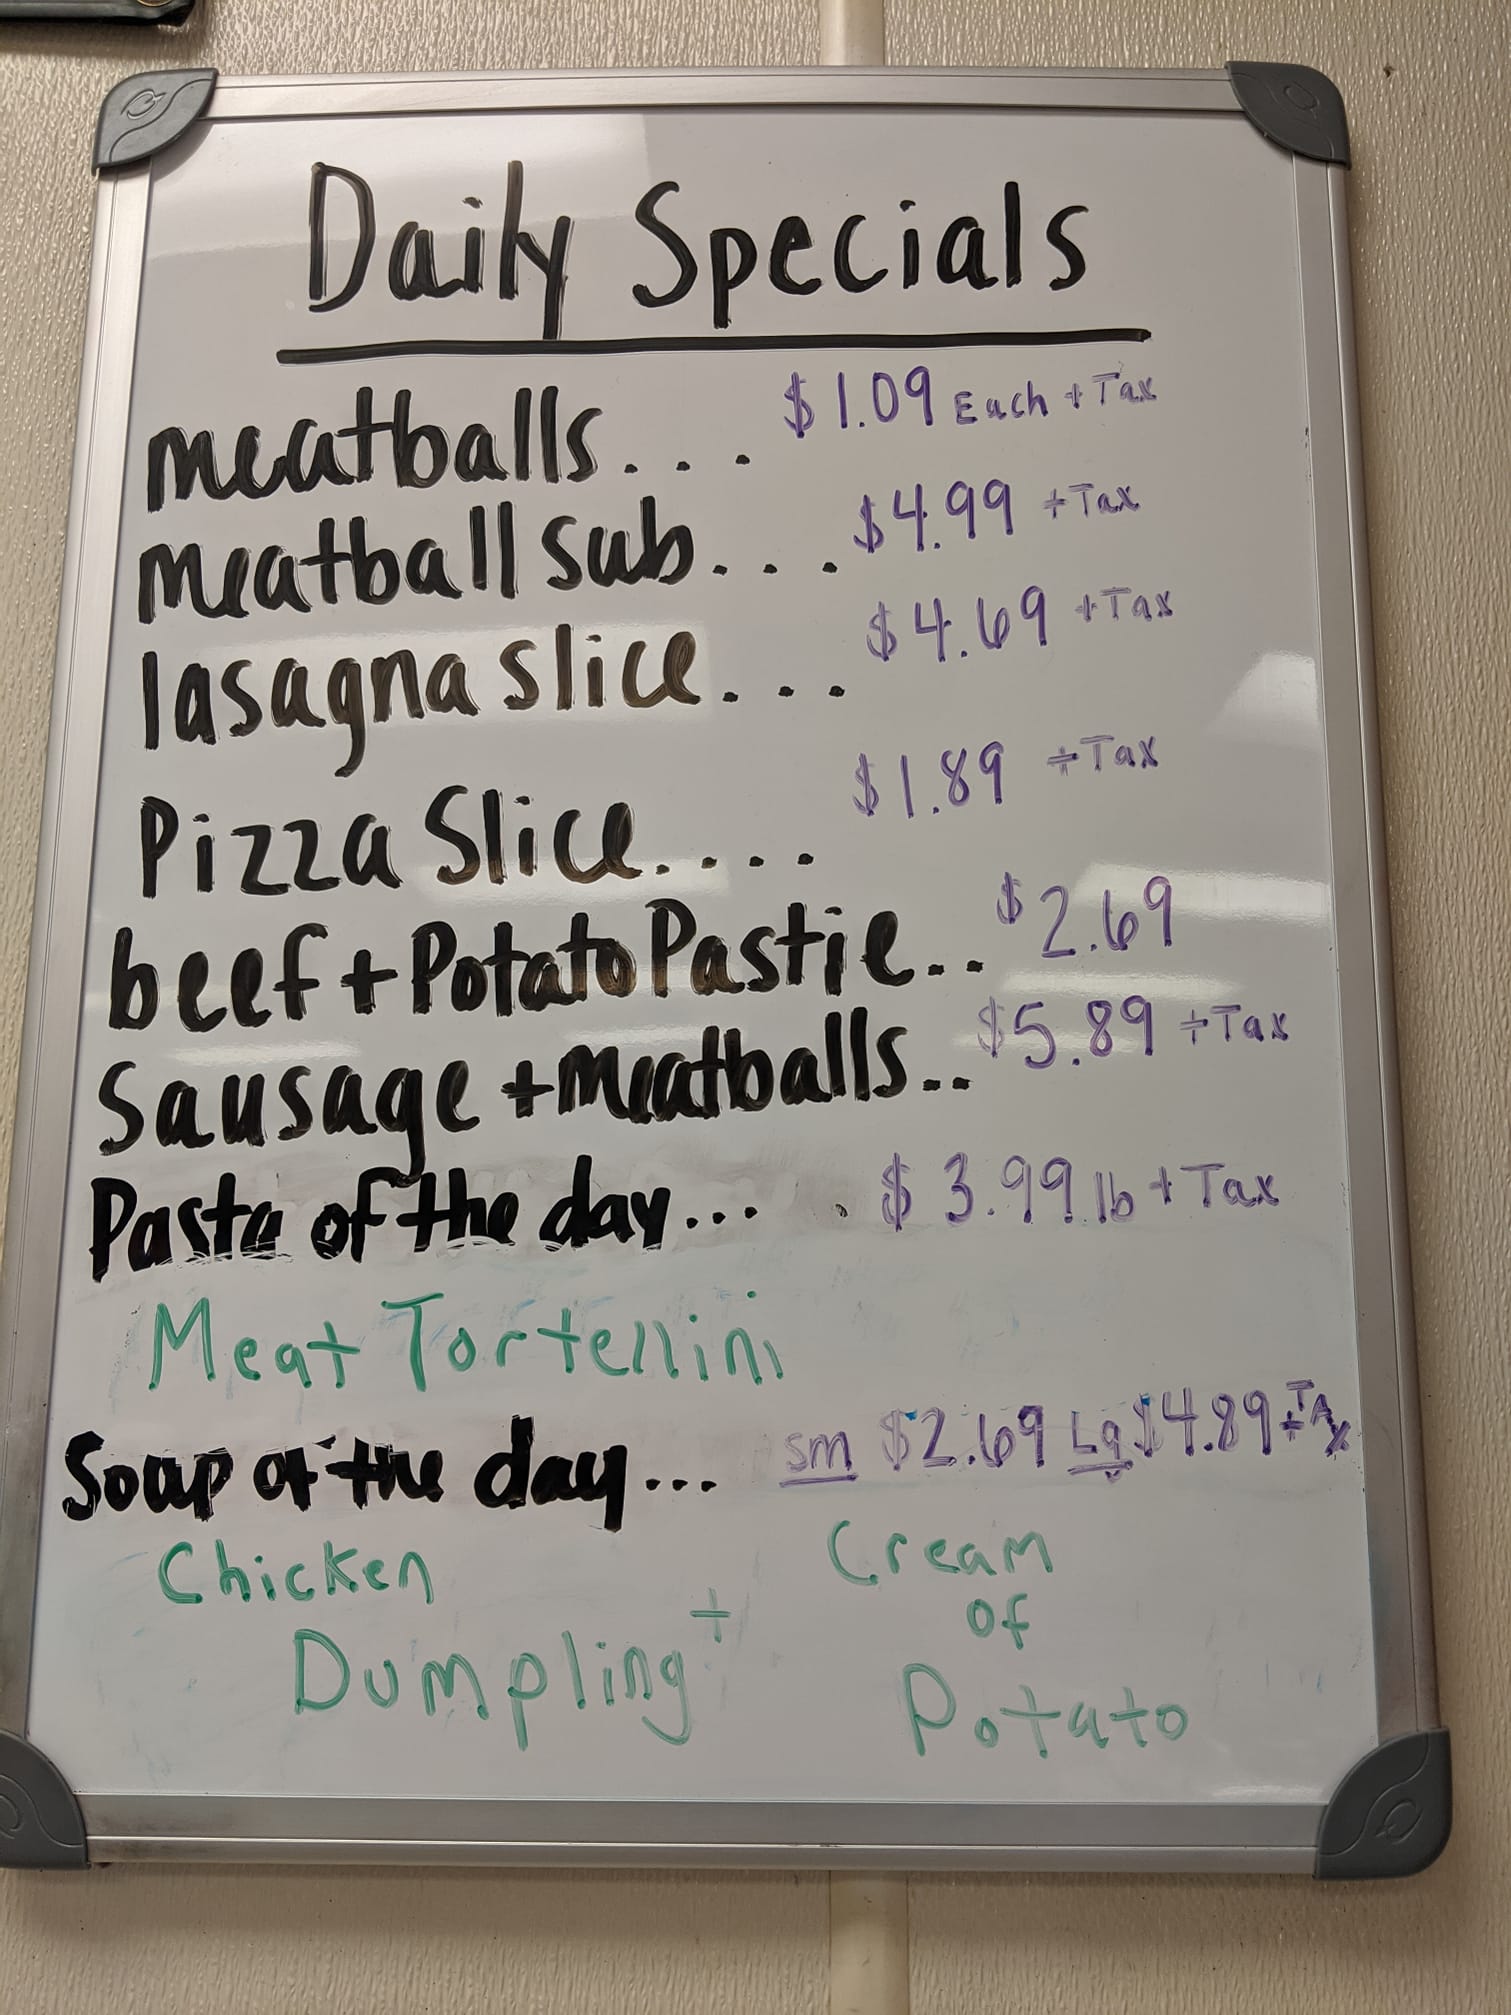 Daily Specials
meatballs... $1.09 Each + Tax
meatball sub.... $4.99 + Tax
lasagna slice.... $4.69 + Tax
Pizza Slice.... $1.89 + Tax
beef + Potato Pastie.. $2.69
Sausage + Meatballs.. $5.89 + Tax
Pasta of the day... . $3.99 lb + Tax
Meat Tortellini
Soup of the day... sm $2.69 Lg $4.89 + TAx
Chicken
Dumpling +
Cream
of
Potato